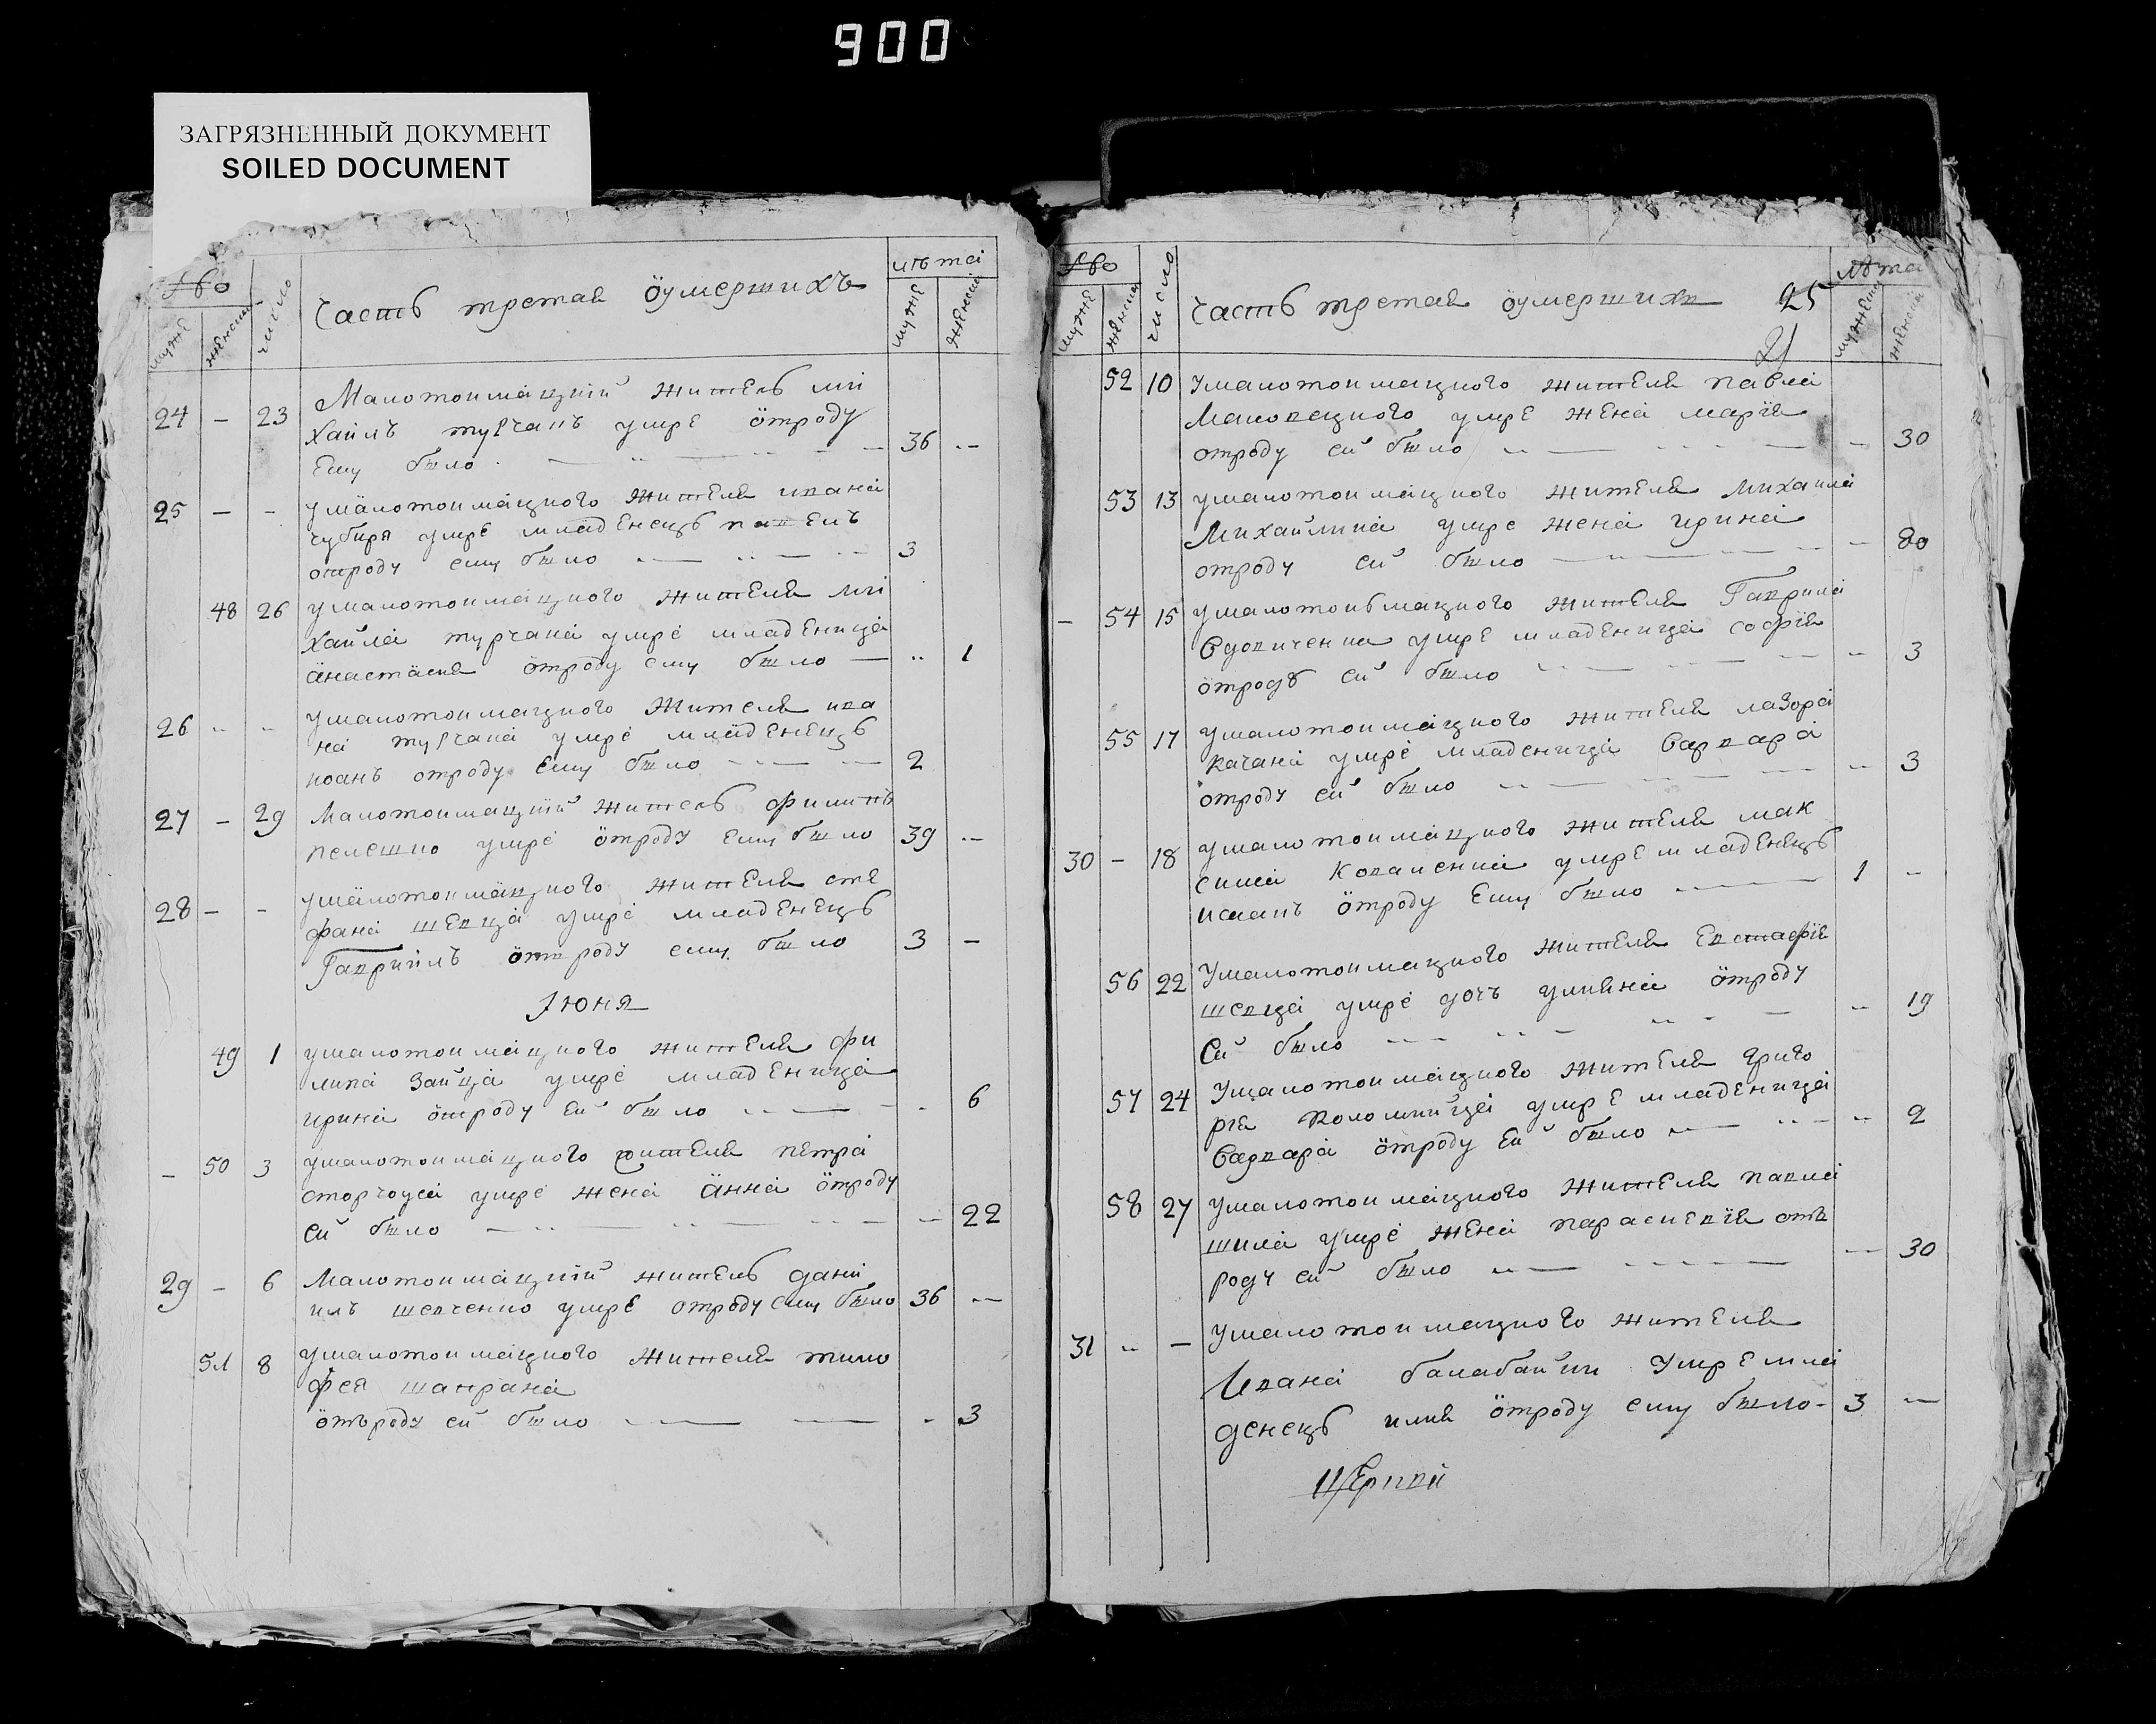 900
ЗАГРЯЗНЕННЫЙ ДОКУМЕНТ
SOILED DOCUMENT
число
Часть третая ӧумершихъ
лѣта
муже
женски
24 - 23 Малотокмацкій житель ми
хаилъ турчанъ умре ӧтроду
Ему было 36
25 - - умалотокмацкого жителя ивана
чубиря умре младЕнецъ павЕлъ
отроду ему было 3
48 26 умалотокмацкого жителя ми
хайла турчана умре младЕница
анастасия ӧтроду ему было 1
26 умалотокмацкого жителя ива
на турчана умре младЕнЕцъ
иоанъ отроду Ему было 2
27 - 29 Малотокмацкій житель филипъ
пелешко умре ӧтроду Ему было 39
28 - - умалотокмацкого жителя сте
фана шЕвца умре младЕнЕцъ
Гавріилъ ӧтроду ему было 3 -
Іюня
49 1 умалотокмацкого жителя фи
липа Зайца умре младЕница
ирина ӧтроду Ей было 6
- 50 3 умалотокмацкого жителя пЕтра
сторчоуса умре жена анна ӧтроду
ей было 22
29 - 6 Малотокмацкій житЕль дани
илъ шевченко умрЕ отроду ему было 36
51 8 умалотокмацкого жителя тимо
фея шапрана
ӧтъроду ей было - 3
число
Часть третая ӧумершихъ 25
21
лѣта
52 10 умалотокмацкого жителя павла
умрЕ жЕна марія
отроду ей было 30
53 13 умалотокмацкого житЕля михаила
Михайлика умре жена ирина
отроду ей было 80
- 54 15 умалотокьмацкого жителя Гаврила
Вдовиченка умрЕ младЕница софія
ӧтродъ ей было 3
55 17 умалотокмацкого жителя лазора
качана умре младеница Варвара
отроду ей было 3
30 - 18 умалотокмацкого жителя мак
сима Коваленка умрЕ младЕнЕцъ
ӧтроду Ему было 1
56 22 Умалотокмацкого житЕля Евстафія
шевца умре дочъ улияна ӧтроду
Ей было 19
57 24 Умалотокмацкого житЕля григо
рія Коломийца умрЕ младЕница
Варвара ӧтроду Ей было 2
58 27 умалотокмацкого жителя павла
шила умре жЕна параскЕвія отъ
роду ей было 30
31 - умалотокмацкого житЕля
Ивана балабайки УмрЕ мла
денецъ илия ӧтроду ему было - 3